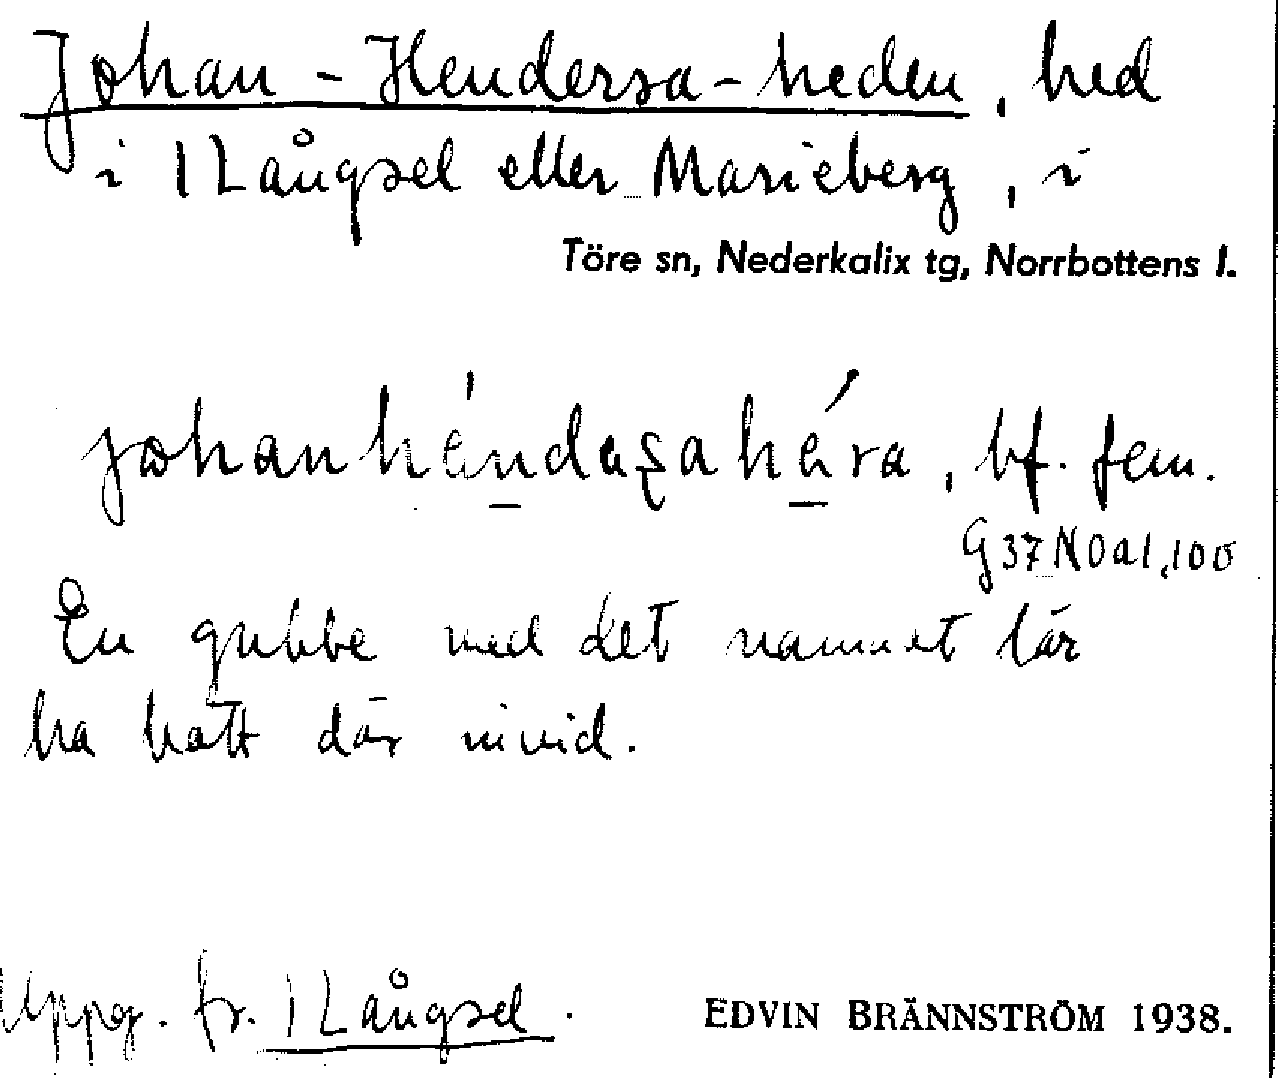 Johan-Hendersa-heden, hed
i 1 Långsel eller Marieberg, i
Töre sn, Nederkalix tg, Norrbottens l.
bf. fem.
G 37 N0a1,100
En gubbe med det namnet lär
ha haft där nivid.
Uppg. fr. 1 Långsel.
EDVIN BRÄNNSTRÖM 1938.